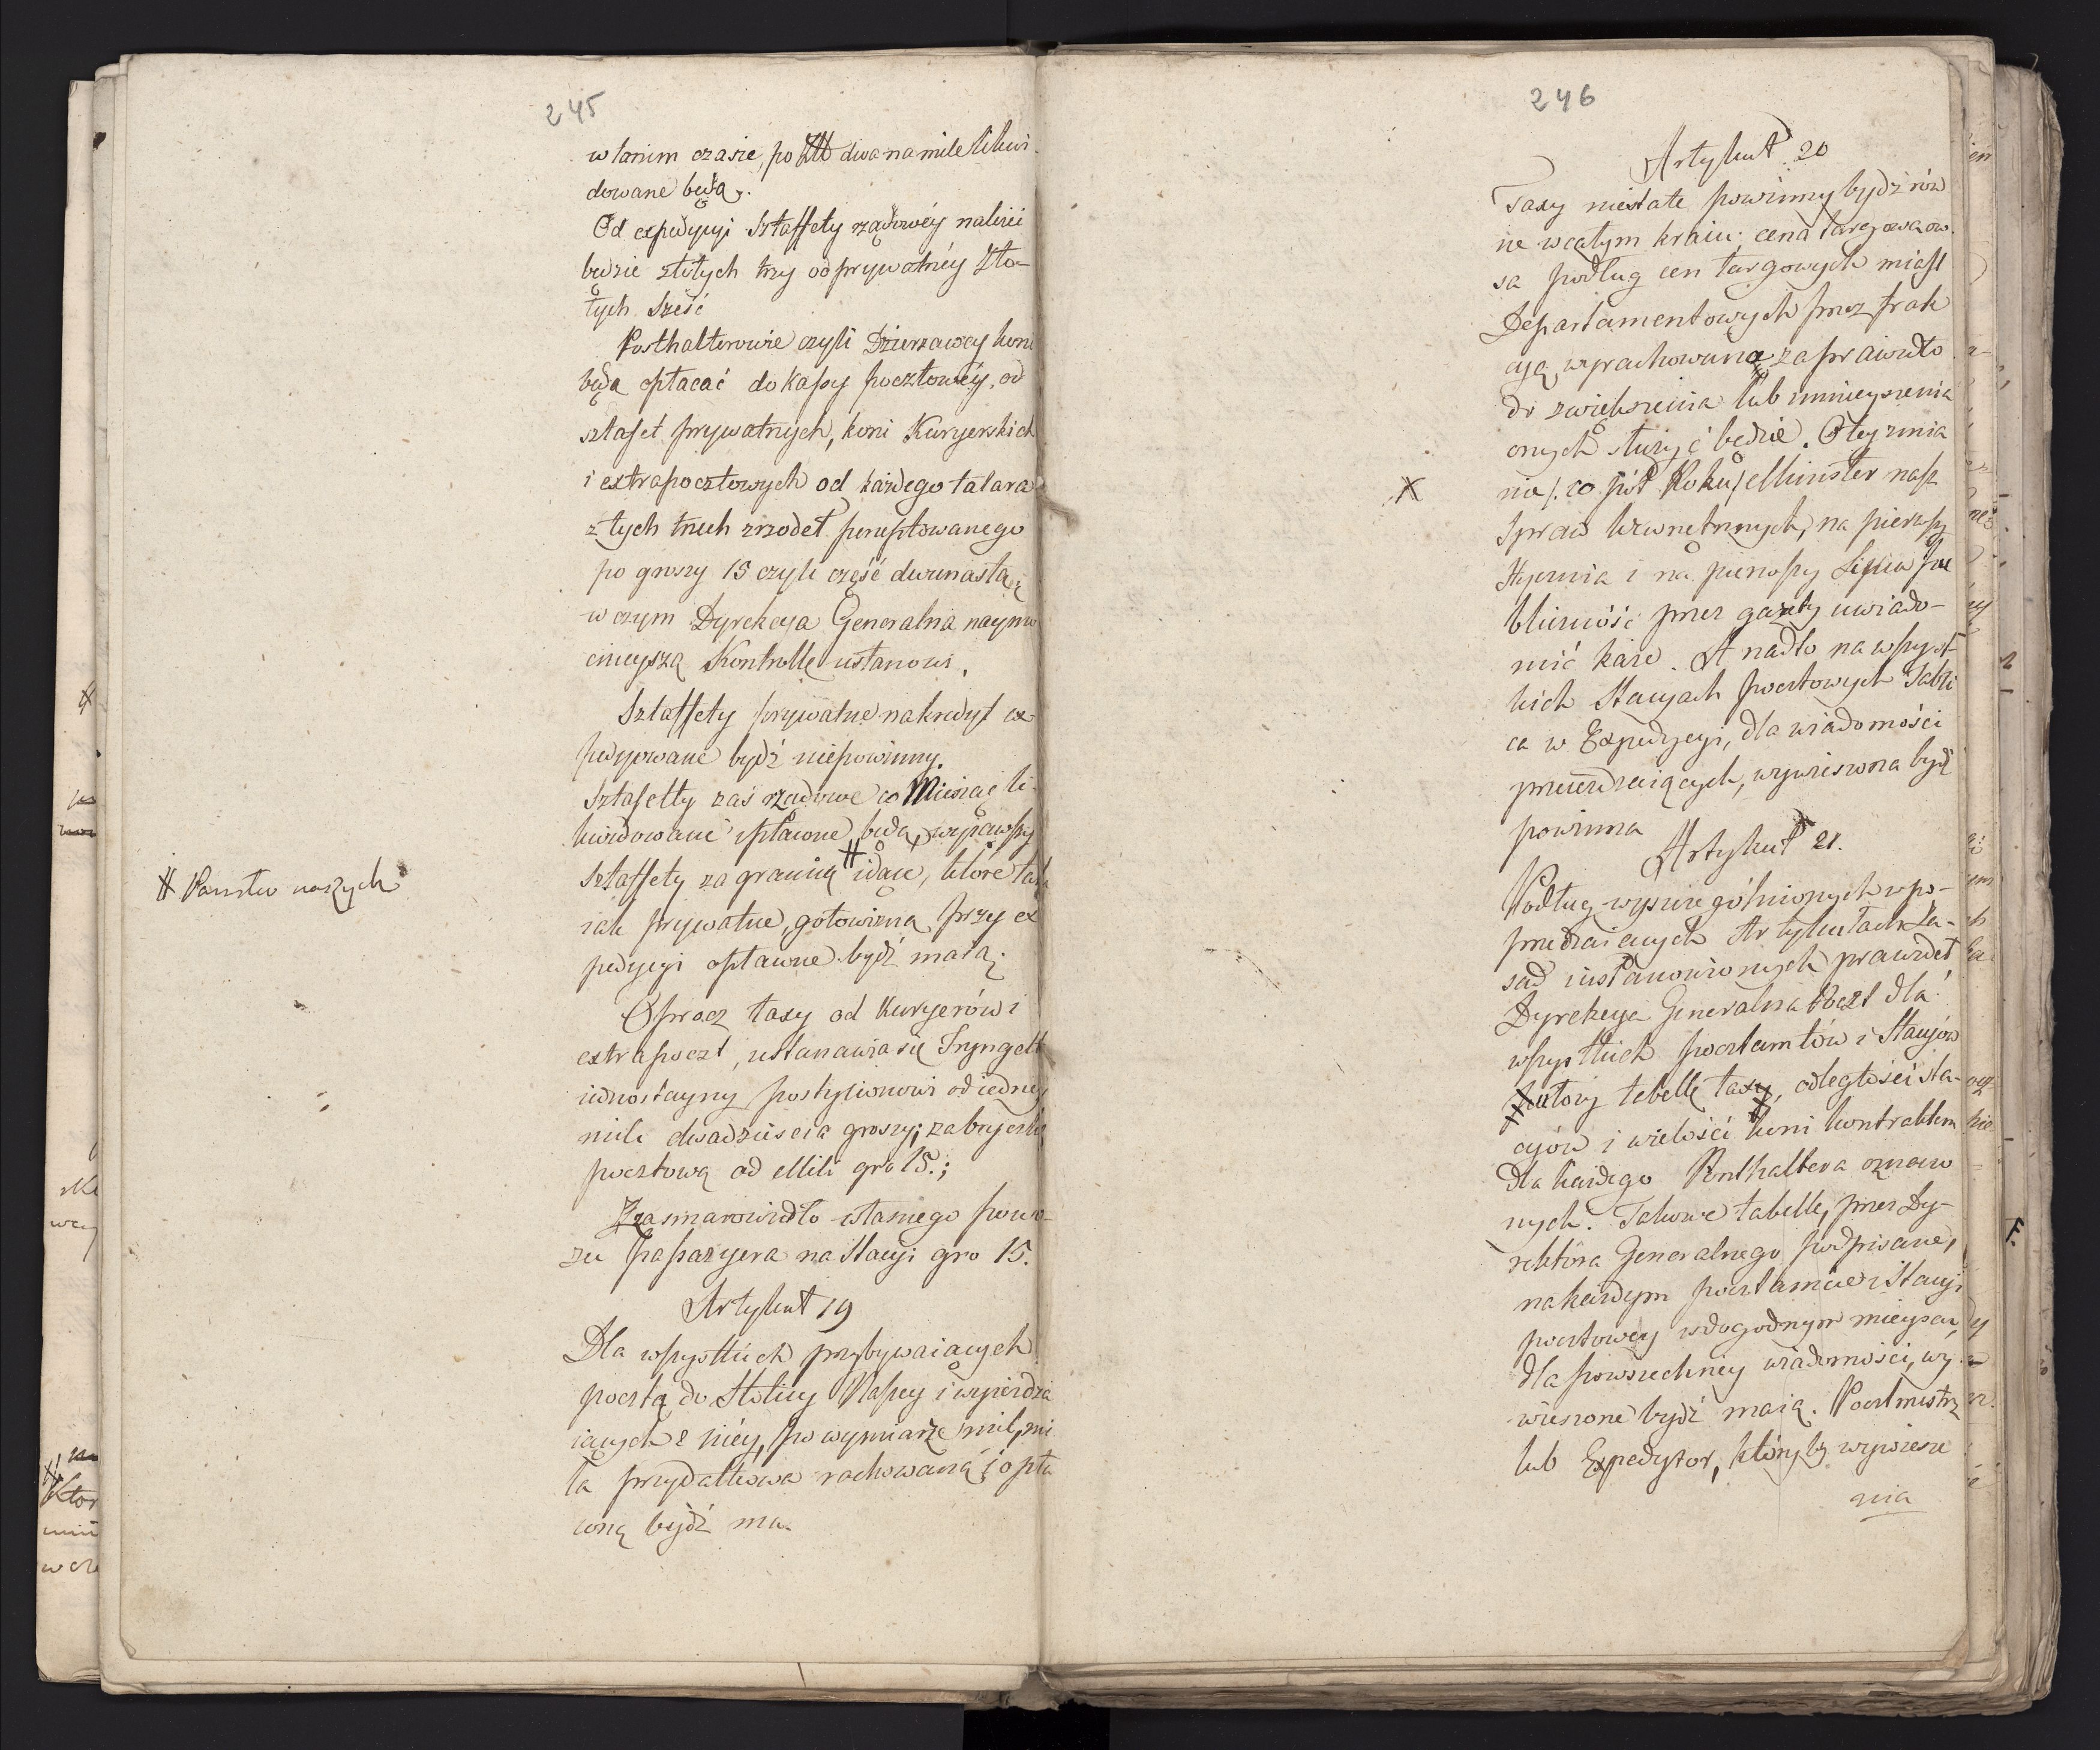 245
w tanim czasie, po Złł dwa na mile likwi-
dowane będą.
Od expedycyi Sztaffety rządowéy należéć
będzie złotych trzy od prywatnéy Zło-
tych Sześć
Posthalterowie czyli Dzierzawcy koni
będą opłacać do Kassy pocztowéy, od
sztafet prywatnych, koni Kuryerskich
i extrapocztowych od każdego talara
z tych trzech zrzodeł perceptowanego
po groszy 15 czyli część dwunastą,
w czym Dyrekcya Generalna naymo
cnieyszą Kontrollę ustanowi.
Sztaffety prywatne na kredyt ex-
pedyowane bydź niepowinny.
Sztafetty zaś rządowe co Miesiąc li-
kwidowane i płacone będą, wyjąwszy
Sztaffety za granicę # idące, które tak
# Państw naszych
iak prywatne, gotowizną przy ex
pedycyi opłacone bydź maią.
Oprocz taxy od Kuryerów i
extrapoczt, ustanawia się Tryngelt
iednostayny postylionowi od iedney
mili dwadzieścia groszy; za bryczkę
pocztową od Mili gro 15.;
Za smarowidło własnego powo-
zu Passażyera na Stacyi gro 15.
Artykuł 19
Dla wszystkich przybywaiących
pocztą do Stolicy Naszey i wyieżdża
iących z niéy, po wymiarze mil, mi
la przydatkowa rachowaną i opła
coną bydź ma.
246
Artykuł 20
Taxy niestałe powinny bydź rów
ne w całym kraiu; cena targowa ow
sa podług cen targowych miast
Departamentowych przez frak
cyą wyrachowana za prawidło
do zwiększenia lub zmnieyszenia
onych służyć będzie. O tey zmia
X
nie /: co pół Roku/ Minister nasz
Spraw Wewnętrznych, na pierwszy
Stycznia i na pierwszy Lipca pu
bliczność przez gazety uwiado-
mić każe. A nadto na wszyst-
kich Stacyach pocztowych Tabli
ca w Expedycyi, dla wiadomości
przeieżdzaiących, wywieszona bydź
powinna
Artykuł 21.
Podług wyszczególnionych w po-
przedzaiących Artykułach Za-
sad i ustanowionych prawideł
Dyrekcya Generalna Poczt dla
wszystkich pocztamtów i Stacyów
ułoży tabellę taxy, odległości sta-
cyów i wielości koni kontraktem
dla każdego Posthaltera oznaczo
nych. Takowe tabelle, przez Dy-
rektora Generalnego podpisane,
na każdym pocztamcie i Stacyi
pocztowey w dogodnym mieyscu,
dla powszechney wiadomości, wy-
wieszone bydź maią. Pocztmistrz
lub Expedytor, któryby wywiesze
nia